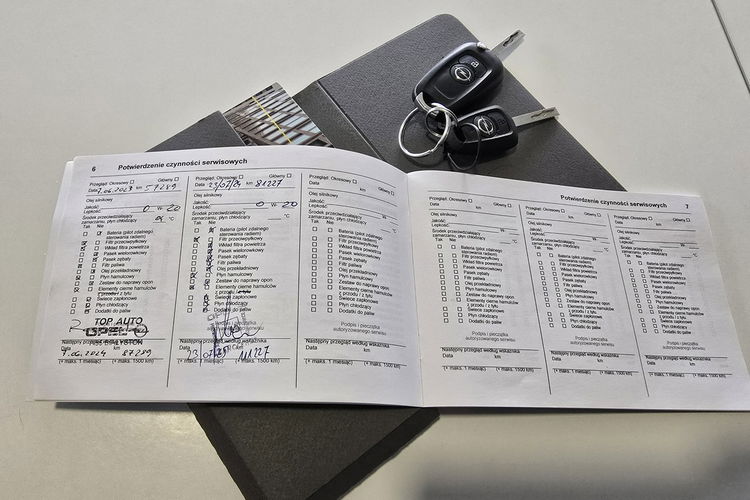 6 Potwierdzenie czynności serwisowych
Przegląd: Okresowy Główny
Data 7.06.2023 km 57289
Olej silnikowy
Jakość:
Lepkość: 0 W 20
Środek przeciwdziałający
zamarzaniu, płyn chłodzący °C
Tak Nie
Bateria (pilot zdalnego
sterowania radiem)
Filtr przeciwpyłkowy
Wkład filtra powietrza
Pasek wielorowkowy
Pasek zębaty
Filtr paliwa
Olej przekładniowy
Płyn hamulcowy
Zestaw do naprawy opon
Elementy cierne hamulców
z przodu / z tyłu
Świece zapłonowe
Płyn chłodzący
Dodatki do paliw
TOP AUTO
Następny przegląd według wskaźnika
Data km
7.06.2024 87289
(+ maks. 1 miesiąc) (+ maks. 1500 km)
Przegląd: Okresowy Główny
Data 23/07/24 km 81227
Olej silnikowy
Jakość:
Lepkość: 0 W 20
Środek przeciwdziałający
zamarzaniu, płyn chłodzący °C
Tak Nie
Bateria (pilot zdalnego
sterowania radiem)
Filtr przeciwpyłkowy
Wkład filtra powietrza
Pasek wielorowkowy
Pasek zębaty
Filtr paliwa
Olej przekładniowy
Płyn hamulcowy
Zestaw do naprawy opon
Elementy cierne hamulców
z przodu / z tyłu
Świece zapłonowe
Płyn chłodzący
Dodatki do paliw
Następny przegląd według wskaźnika
Data km
23/07/25 111227
(+ maks. 1 miesiąc) (+ maks. 1500 km)
Przegląd: Okresowy Główny
Data km
Olej silnikowy
Jakość:
Lepkość: W
Środek przeciwdziałający
zamarzaniu, płyn chłodzący °C
Tak Nie
Bateria (pilot zdalnego
sterowania radiem)
Filtr przeciwpyłkowy
Wkład filtra powietrza
Pasek wielorowkowy
Pasek zębaty
Filtr paliwa
Olej przekładniowy
Płyn hamulcowy
Zestaw do naprawy opon
Elementy cierne hamulców
z przodu / z tyłu
Świece zapłonowe
Płyn chłodzący
Dodatki do paliw
Podpis i pieczątka
autoryzowanego serwisu
Następny przegląd według wskaźnika
Data km
(+ maks. 1 miesiąc) (+ maks. 1500 km)
Potwierdzenie czynności serwisowych 7
Przegląd: Okresowy Główny
Data km
Olej silnikowy
Jakość:
Lepkość: W
Środek przeciwdziałający
zamarzaniu, płyn chłodzący °C
Tak Nie
Bateria (pilot zdalnego
sterowania radiem)
Filtr przeciwpyłkowy
Wkład filtra powietrza
Pasek wielorowkowy
Pasek zębaty
Filtr paliwa
Olej przekładniowy
Płyn hamulcowy
Zestaw do naprawy opon
Elementy cierne hamulców
z przodu / z tyłu
Świece zapłonowe
Płyn chłodzący
Dodatki do paliw
Podpis i pieczątka
autoryzowanego serwisu
Następny przegląd według wskaźnika
Data km
(+ maks. 1 miesiąc) (+ maks. 1500 km)
Przegląd: Okresowy Główny
Data km
Olej silnikowy
Jakość:
Lepkość: W
Środek przeciwdziałający
zamarzaniu, płyn chłodzący °C
Tak Nie
Bateria (pilot zdalnego
sterowania radiem)
Filtr przeciwpyłkowy
Wkład filtra powietrza
Pasek wielorowkowy
Pasek zębaty
Filtr paliwa
Olej przekładniowy
Płyn hamulcowy
Zestaw do naprawy opon
Elementy cierne hamulców
z przodu / z tyłu
Świece zapłonowe
Płyn chłodzący
Dodatki do paliw
Podpis i pieczątka
autoryzowanego serwisu
Następny przegląd według wskaźnika
Data km
(+ maks. 1 miesiąc) (+ maks. 1500 km)
Przegląd: Okresowy Główny
Data km
Olej silnikowy
Jakość:
Lepkość: W
Środek przeciwdziałający
zamarzaniu, płyn chłodzący °C
Tak Nie
Bateria (pilot zdalnego
sterowania radiem)
Filtr przeciwpyłkowy
Wkład filtra powietrza
Pasek wielorowkowy
Pasek zębaty
Filtr paliwa
Olej przekładniowy
Płyn hamulcowy
Zestaw do naprawy opon
Elementy cierne hamulców
z przodu / z tyłu
Świece zapłonowe
Płyn chłodzący
Dodatki do paliw
Podpis i pieczątka
autoryzowanego serwisu
Następny przegląd według wskaźnika
Data km
(+ maks. 1 miesiąc) (+ maks. 1500 km)